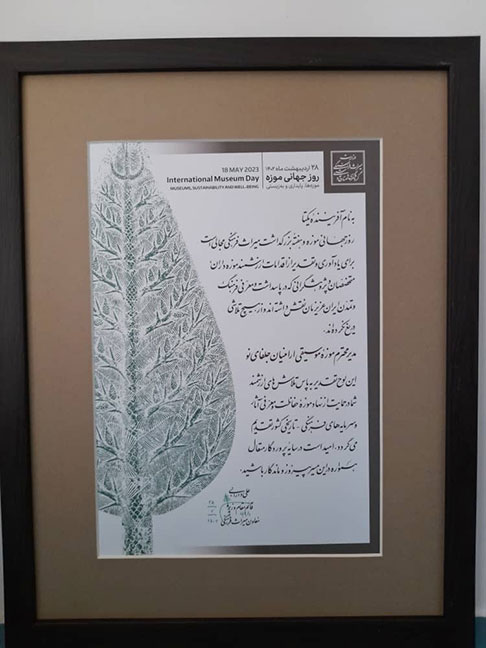 18 MAY 2023
International Museum Day
MUSEUMS, SUSTAINABILITY AND WELL-BEING
۲۸ اردیبهشت ماه ۱۴۰۲
روز جهانی موزه
موزه‌ها، پایداری و بهزیستی
به نام آفریننده یکتا
روز جهانی موزه و هفته بزرگداشت میراث فرهنگی مجالی است
برای یادآوری و تقدیر از اقدامات ارزشمند موزه داران
متخصصان و پژوهشگرانی که در پاسداشت و معرفی فرهنگ
و تمدن ایران عزیزمان نقش داشته اند و از هیچ تلاشی
دریغ نکرده اند.
مدیر محترم موزه موسیقی ارامنیان جلفای نو
این لوح تقدیر به پاس تلاش های ارزشمند
شما در حمایت از نهاد موزه حفاظت و معرفی آثار
و سرمایه های فرهنگی - تاریخی کشور تقدیم
می گردد. امید است در سایه پروردگار متعال
همواره در این مسیر پیروز و ماندگار باشید.
علی
قائم مقام وزیر و
معاون میراث فرهنگی